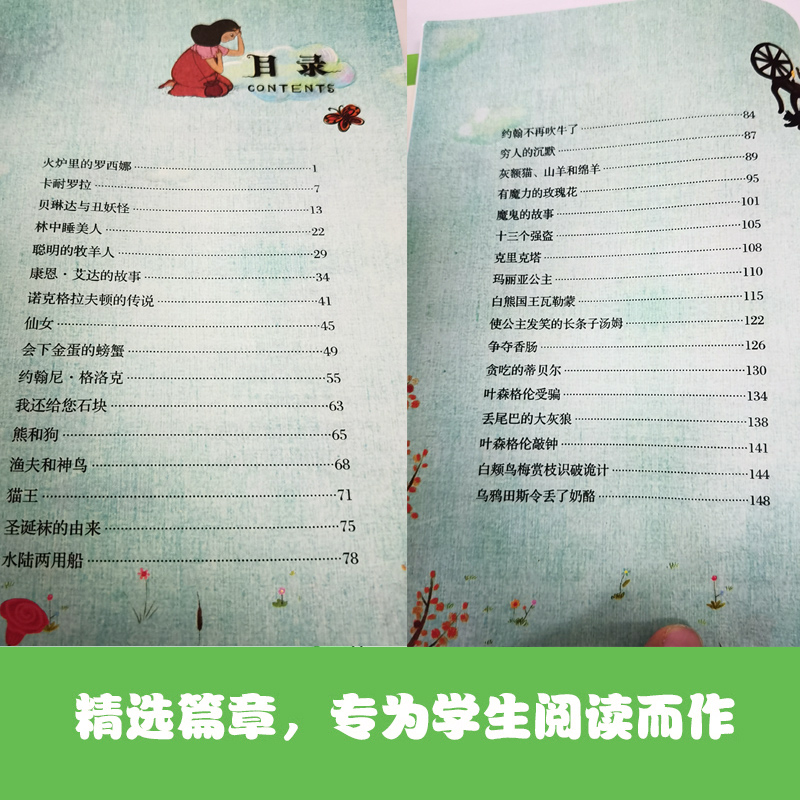 目录
CONTENTS
火炉里的罗西娜 1
卡耐罗拉 7
贝琳达与丑妖怪 13
林中睡美人 22
聪明的牧羊人 29
康恩·艾达的故事 34
诺克格拉夫顿的传说 41
仙女 45
会下金蛋的螃蟹 49
约翰尼·格洛克 55
我还给您石块 63
熊和狗 65
渔夫和神鸟 68
猫王 71
圣诞袜的由来 75
水陆两用船 78
约翰不再吹牛了 84
穷人的沉默 87
灰额猫、山羊和绵羊 89
有魔力的玫瑰花 95
魔鬼的故事 101
十三个强盗 105
克里克塔 108
玛丽亚公主 110
白熊国王瓦勒蒙 115
使公主发笑的长条子汤姆 122
争夺香肠 126
贪吃的蒂贝尔 130
叶森格伦受骗 134
丢尾巴的大灰狼 138
叶森格伦敲钟 141
白颊鸟梅赏枝识破诡计 144
乌鸦田斯令丢了奶酪 148
精选篇章，专为学生阅读而作